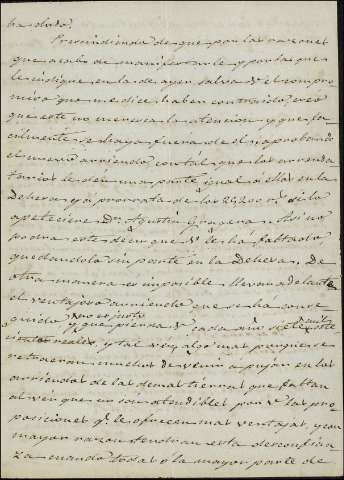 ha dado?
Prescindiendo de que por las razones
que acabo de manifestarle y por las que
le indiqué en la de ayer salva V. el compro-
miso que me dice haben contraido, creo
que este no merezca la atencion y que fa-
cilmente se haya fuera de el aprobando
el nuevo arriendo, con tal que los arrenda-
tarios le den una parte igual á ellos en la
Dehesa y á prorrata de los 25,200 rs. si lo
apeteciere Dn. Agustin Gragera. Asi no
podrá este decir que V. le há faltado
quedandole sin parte en la Dehesa. De
otra manera es imposible llevar adelante
el ventajoso arriendo que se há conse
guido, y no es justo que pierda V. cada año siete mil
reales, y tal vez algo mas porque se
retraeran muchos de venir a pujar en los
arriendos de las demas tierras que faltan
al ver que no son atendibles por V. las pro-
posiciones q. le ofrecen mas ventajas, y con
mayor razon tendran esta desconfian-
za cuando todos ó la mayor parte de